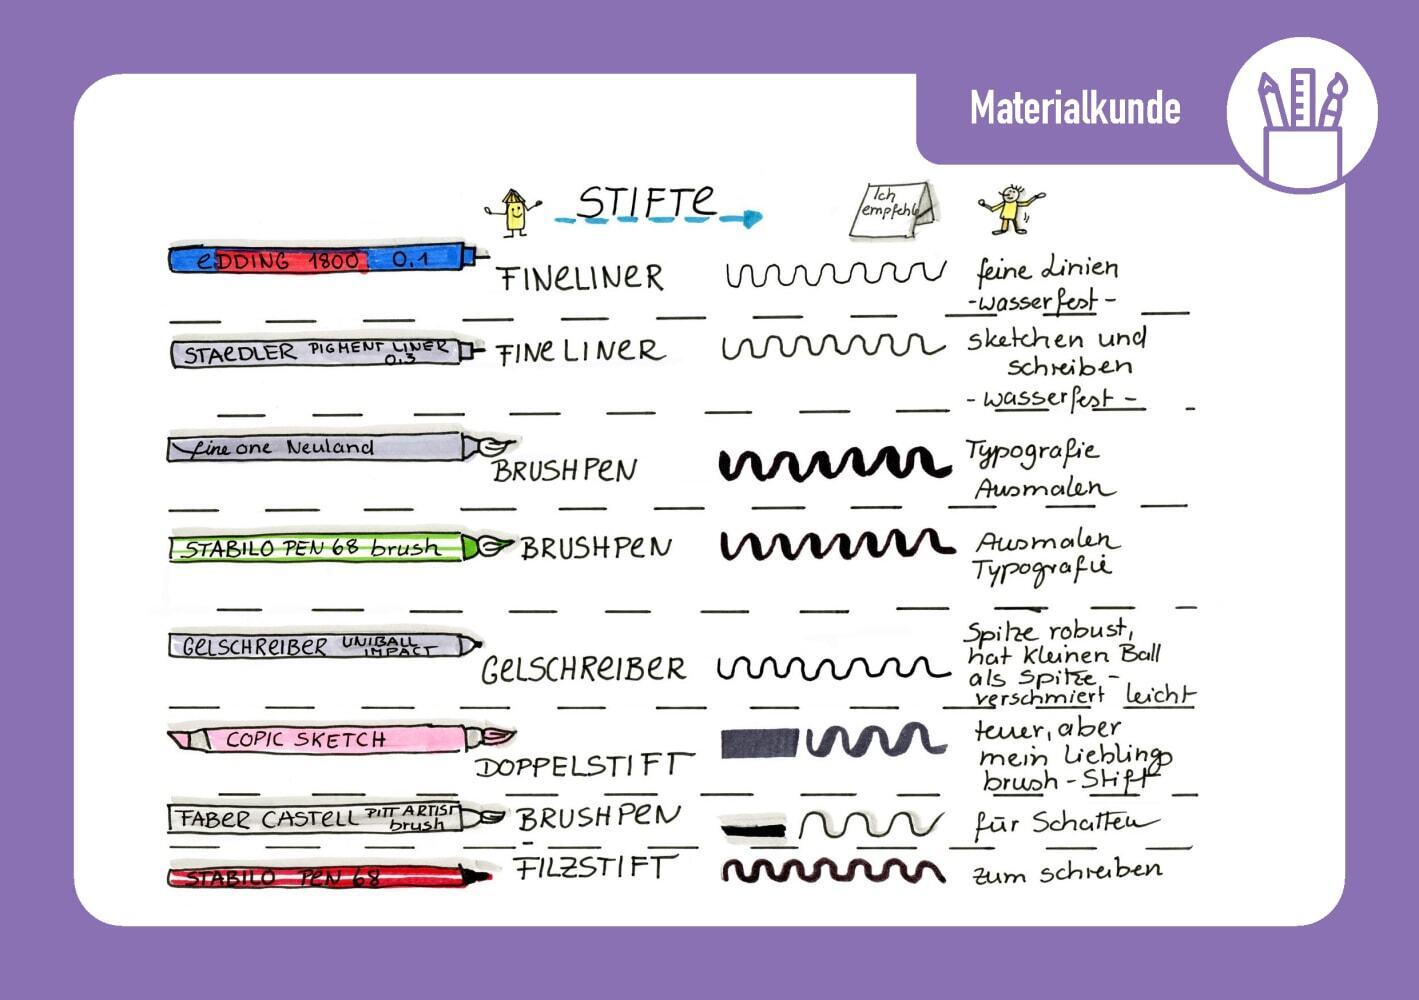 Materialkunde
STIFTe
Ich
empfehle
eDDING 1800 0.1
FINeLINER
feine Linien
-wasserfest-
STAeDLER PIGMENT LINER
0.3
FINeLINER
sketchen und
schreiben
- wasserfest -
fine one Neuland
BRUSHPEN
Typografie
Ausmalen
STABILO PEN 68 brush
BRUSHPEN
Ausmalen
Typografie
GeLSCHReIBER UNIBALL
IMPACT
GeLSCHReIBER
Spitze robust,
hat kleinen Ball
als Spitze -
verschmiert leicht
COPIC SKETCH
DOPPELSTIFT
teuer, aber
mein Lieblings
brush-Stift
FABER CASTELL PITT ARTIST
brush
BRUSHPeN
für Schatten
STABILO PeN 68
FILZSTIFT
zum schreiben